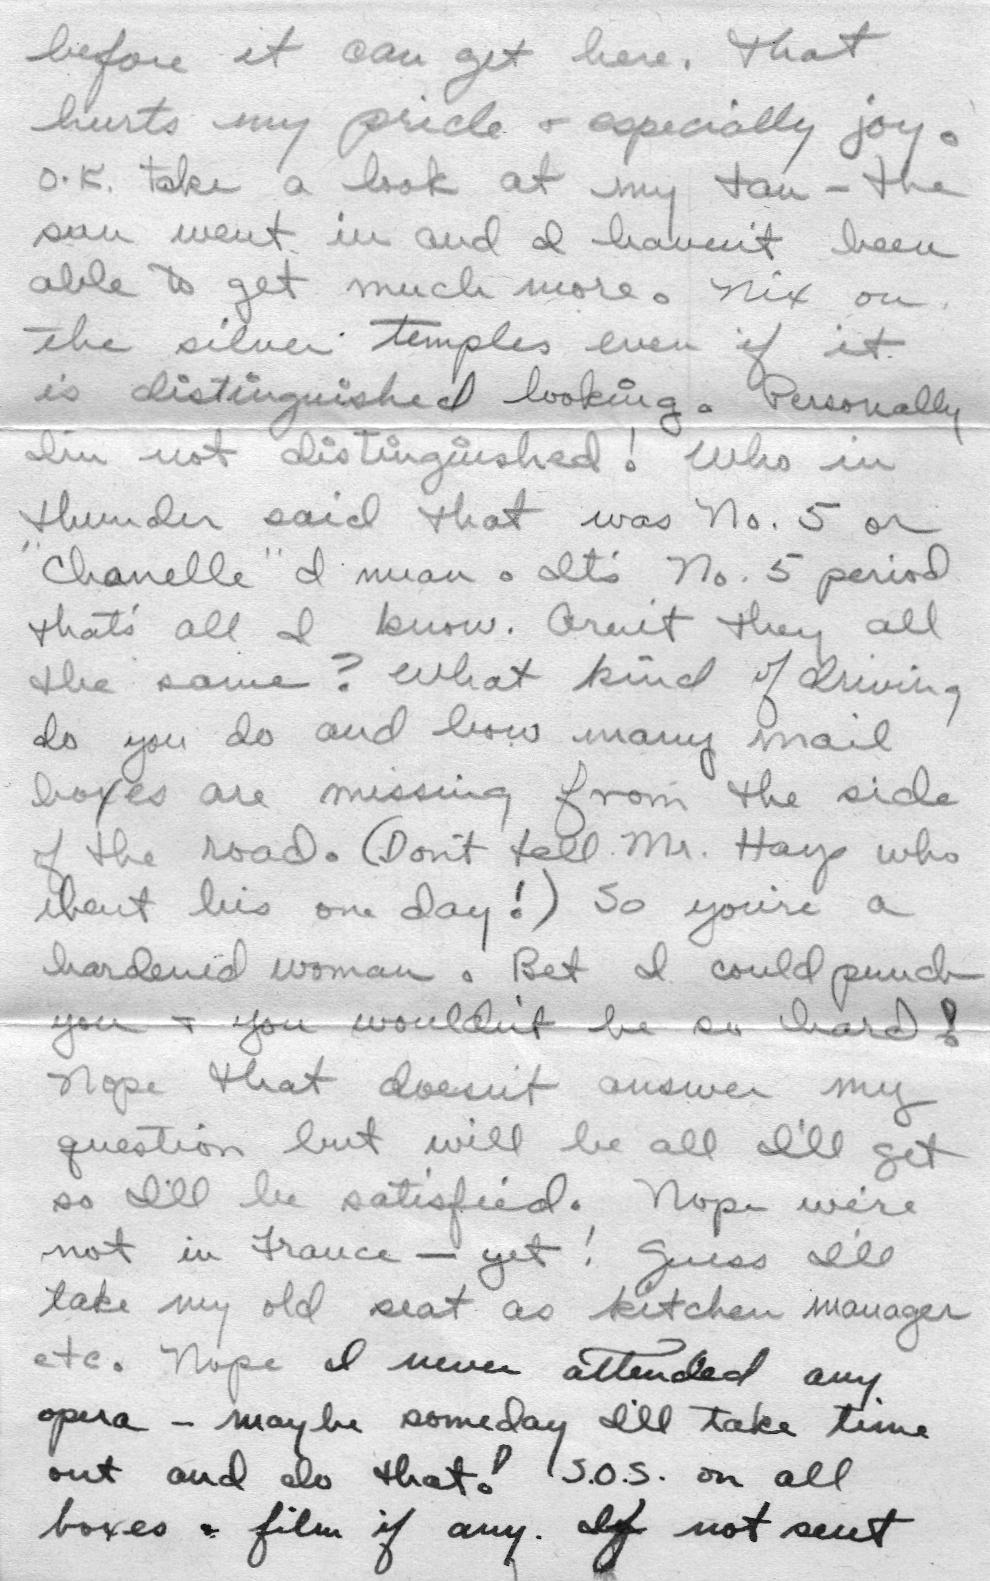 before it can get here. That
hurts my pride & especially joy.
O.K. take a look at my tan – the
sun went in and I haven't been
able to get much more. Nix on
the silver temples even if it
is distinguished looking. Personally
I'm not distinguished! Who in
thunder said that was No. 5 or
"Chanelle" I mean. It's No. 5 period
that's all I know. Aren't they all
the same? What kind of driving
do you do and how many mail
boxes are missing from the side
of the road. (Don't tell Mr. Hays who
bent his one day!) So you're a
hardened woman. Bet I could punch
you & you wouldn't be so hard!
Nope that doesn't answer my
question but will be all I'll get
so I'll be satisfied. Nope we're
not in France – yet! Guess I'll
take my old seat as kitchen manager
etc. Nope I never attended any
opera – maybe someday I'll take time
out and do that! S.O.S. on all
boxes & film if any. If not sent